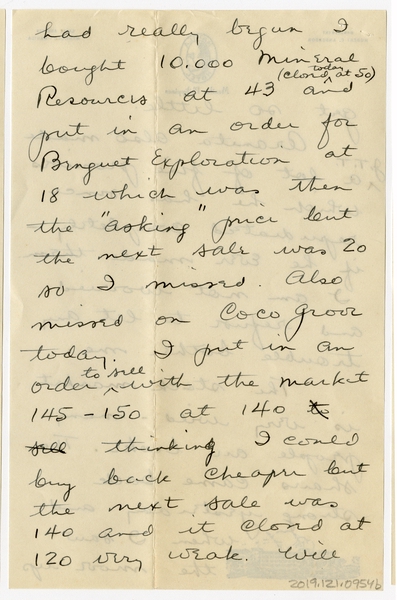 had really begun I
bought 10.000 Mineral
(closed today at 50)
Resources at 43 and
put in an order for
Benguet Exploration at
18 which was then
the "asking" price but
the next sale was 20
so I missed. Also
missed on Coco Grove
today. I put in an
order to sell with the market
145-150 at 140 to
sell thinking I could
buy back cheaper but
the next sale was
140 and it closed at
120 very weak. Will
2019.121.0954b